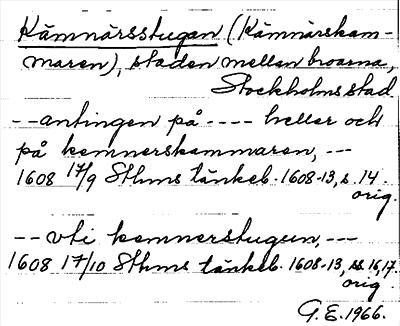 Kämnärsstugan (Kämnärskam-
maren), staden mellan broarna,
Stockholms stad.
--antingen på ---- heller och
på kemnerskammaren, ---
1608 17/9 Sthms tänkeb. 1608-13, s. 14.
orig.
-- vti kemnerstugun, ---
1608 17/10 Sthms tänkeb. 1608-13, ss. 16, 17.
orig.
G.E. 1966.